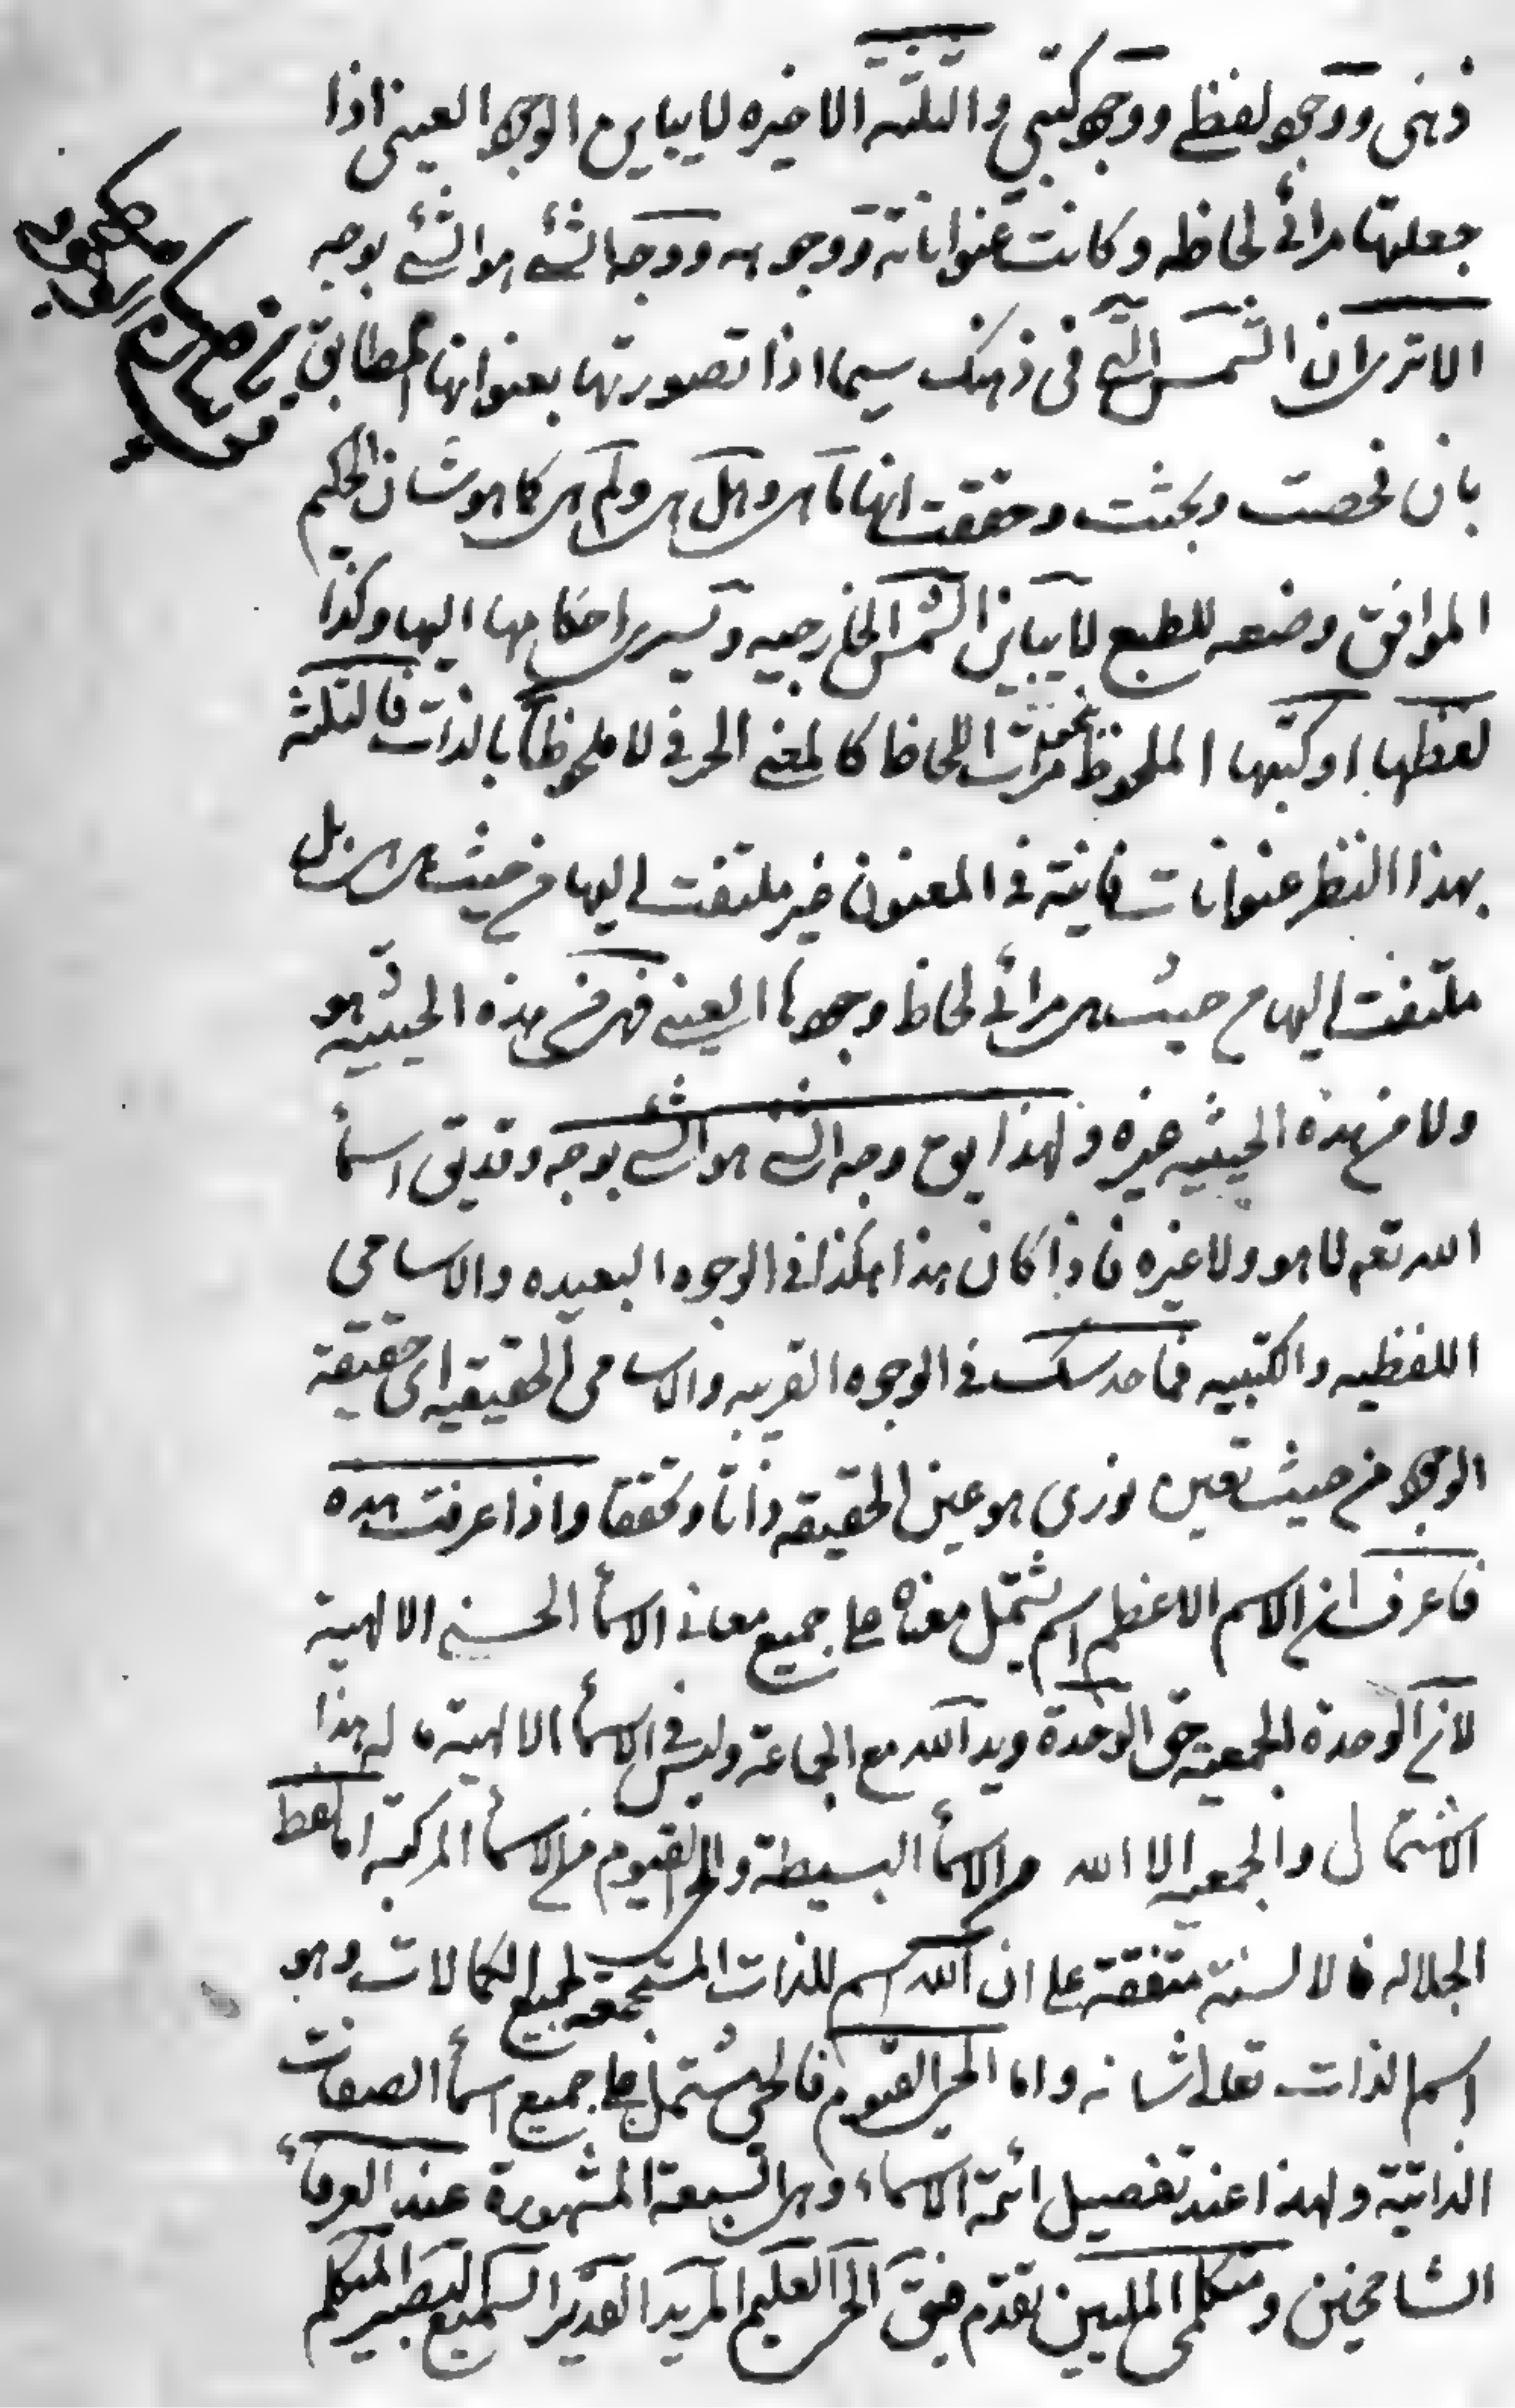 ذهنى ووجود لفظي ووجود كتبي والثلثه الاخيره لا يباين الوجود العينى اذا
جعلتها مرائي لحاظه وكانت عنواناته ووجوهه ووجه الشئ هو الشئ بوجه
الا ترى ان الشمس التي فى ذهنك سيما اذا تصورتها بعنوانها المطابق
بان فحصت وبحثت وحققت انها ما هى وهل هى ولم هى كما هو شان الحكيم
الموافق وضعه للطبع لا يباين الشمس الخارجيه وتسرى احكامها اليها وكذا
لفظها او كتبها الملحوظ مرات اللحاظ كالمعنى الحرفي لا ملحوظا بالذات فالثلثة
بهذا النظر عنوانات فانية في المعنون غير ملتفت اليها من حيث هى هى بل
ملتفت اليها من حيث هى مرائي لحاظ وجودها العيني فهى من هذه الحيثيه هو
ولا من هذه الحيثيه غيره ولهذا يق وجه الشئ هو الشئ بوجه وقد يق اسمأ
الله تعم لا هو ولا غيره فاذا كان هذا هكذا في الوجوه البعيده والاسامى
اللفظيه والكتبيه فما حدسك في الوجوه القريبه والاسامى الحقيقيه اى حقيقة
الوجود من حيث تعين نورى هو عين الحقيقه ذاتا وتحققا واذا عرفت هذه
فاعرف ان الاسم الاعظم اسم يشتمل معناه على جميع معانى الاسمأ الحسنى الالهية
لان الوحدة الجمعيه حق الوحدة ويد الله مع الجماعة وليس في الاسمأ الالهية ما له هذا
الاشتمال والجمعيه الا الله من الاسمأ البسيطة والحى القيوم من الاسمأ المركبة اما لفظ
الجلاله فالالسنة متفقة على ان الله اسم للذات المستجمعه لجميع الكمالات وهو
اسم الذات تعالى شانه واما الحى القيوم فالحى مشتمل على جميع اسمأ الصفات
الذاتية ولهذا عند تفصيل ائمة الاسماء وهى السبعة المشهورة عند العرفأ
الشامخين ومتكلمى المليين تقدم فيق الحى العليم المريد القدير السميع البصير المتكلم